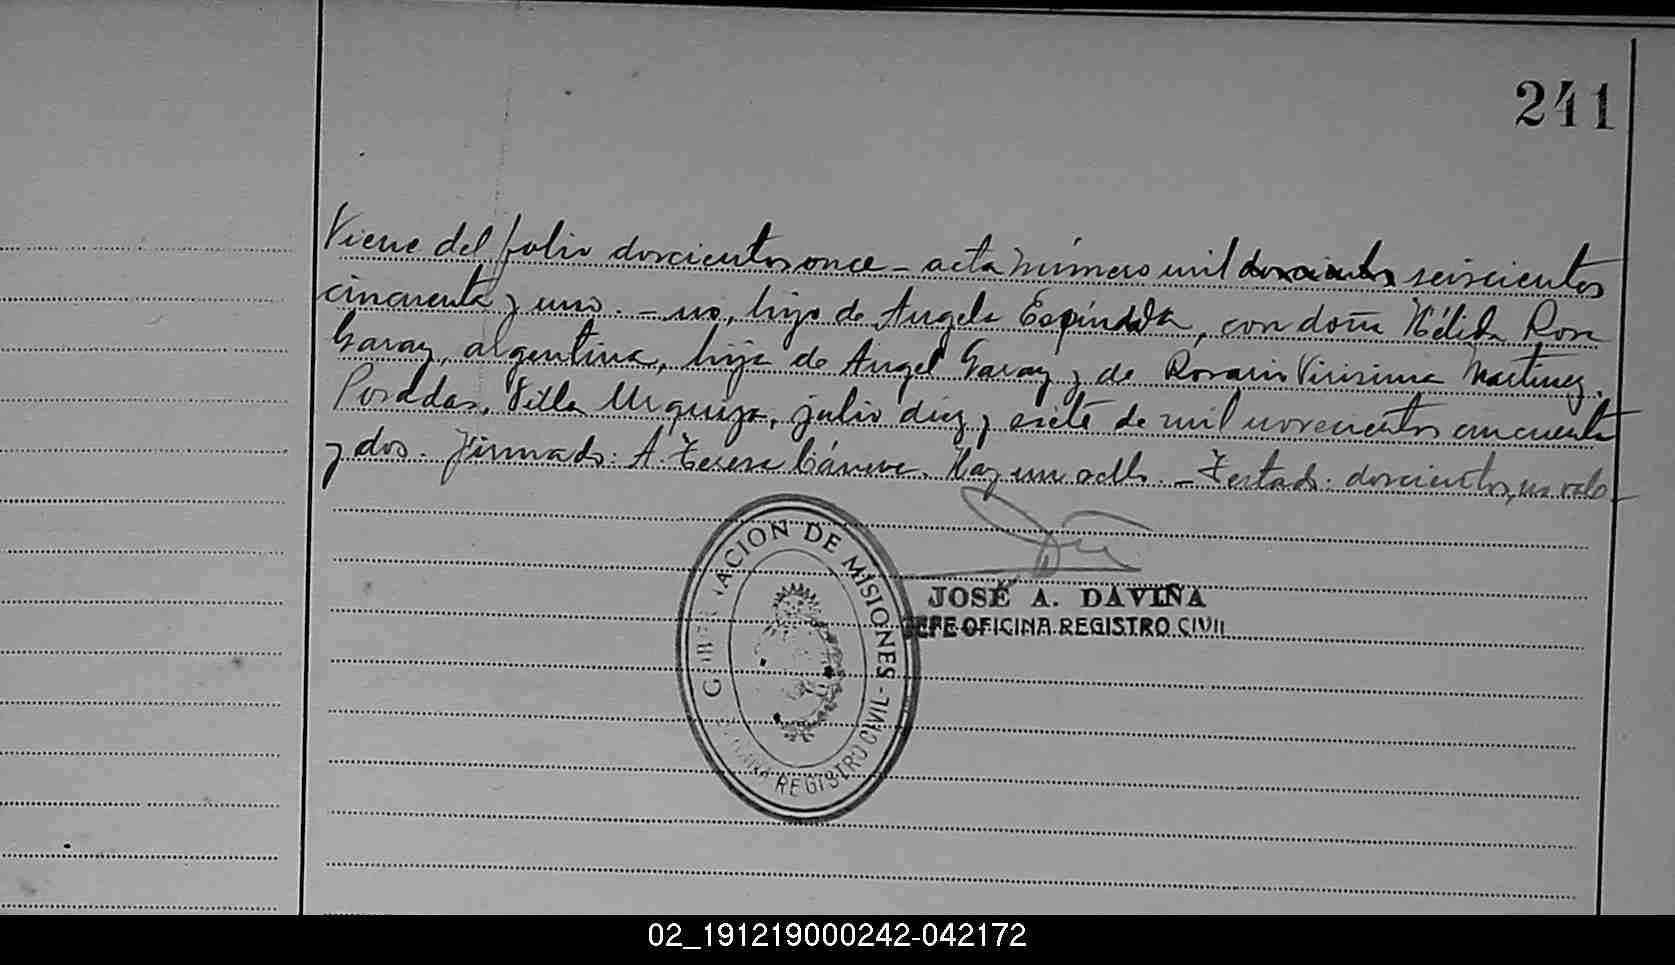 241
Viene del folio doscientos once - acta número mil doscientos seiscientos
cincuenta y uno. - no, hijo de Angela Espíndola, con doña Hélida Rosa
Garay, argentina, hija de Angel Garay y de Rosario Virisima Martinez.
Posadas, Villa Urquiza, julio diez y siete de mil novecientos cincuenta
y dos. Firmado: A. Hay un sello. - Testado: doscientos, no vale -
GOBERNACION DE MISIONES - REGISTRO CIVIL
JOSÉ A. DAVIÑA
JEFE OFICINA REGISTRO CIVIL
02_191219000242-042172